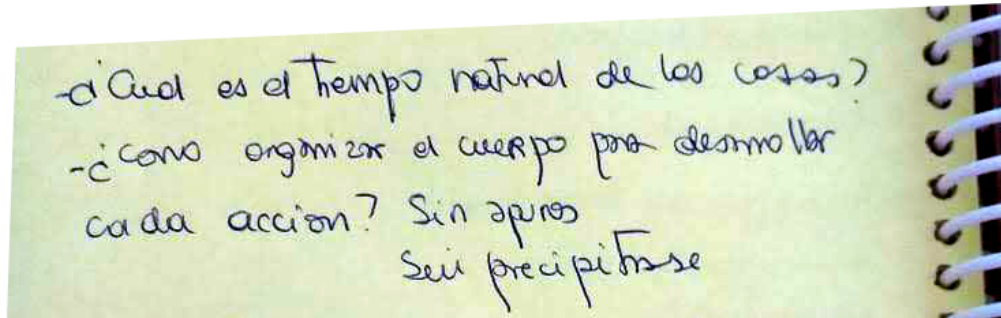 -¿Cual es el Tiempo natural de las cosas?
-¿como organizar el cuerpo para desarrollar
cada accion? Sin apuros
Sin precipitarse